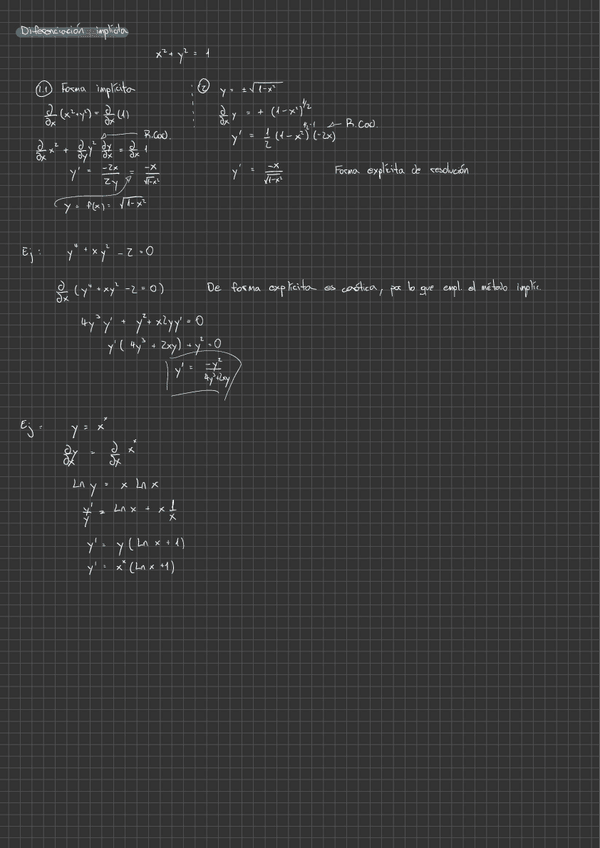 Diferenciación implícita
x² + y² = 1
1.1 Forma implícita
∂/∂x (x²+y²) = ∂/∂x (1)
R.Cad.
∂/∂x x² + ∂/∂y y² ∂y/∂x = ∂/∂x 1
y' = -2x/2y = -x/√(1-x²)
y = f(x) = √(1-x²)
2 y = ±√(1-x²)
∂/∂x y = + (1-x²)^1/2
y' = 1/2 (1-x²)^(1/2 -1) (-2x) R.Cad.
y' = -x/√(1-x²) Forma explícita de resolución
Ej: y⁴ + xy² - 2 = 0
∂/∂x (y⁴ + xy² - 2 = 0) De forma explícita es caótica, por lo que empl. el método implíc.
4y³y' + y² + x2yy' = 0
y'(4y³ + 2xy) + y² = 0
y' = -y²/(4y³+2xy)
Ej: y = x^x
∂y/∂x = ∂/∂x x^x
Ln y = x Ln x
y'/y = Ln x + x 1/x
y' = y (Ln x + 1)
y' = x^x (Ln x +1)